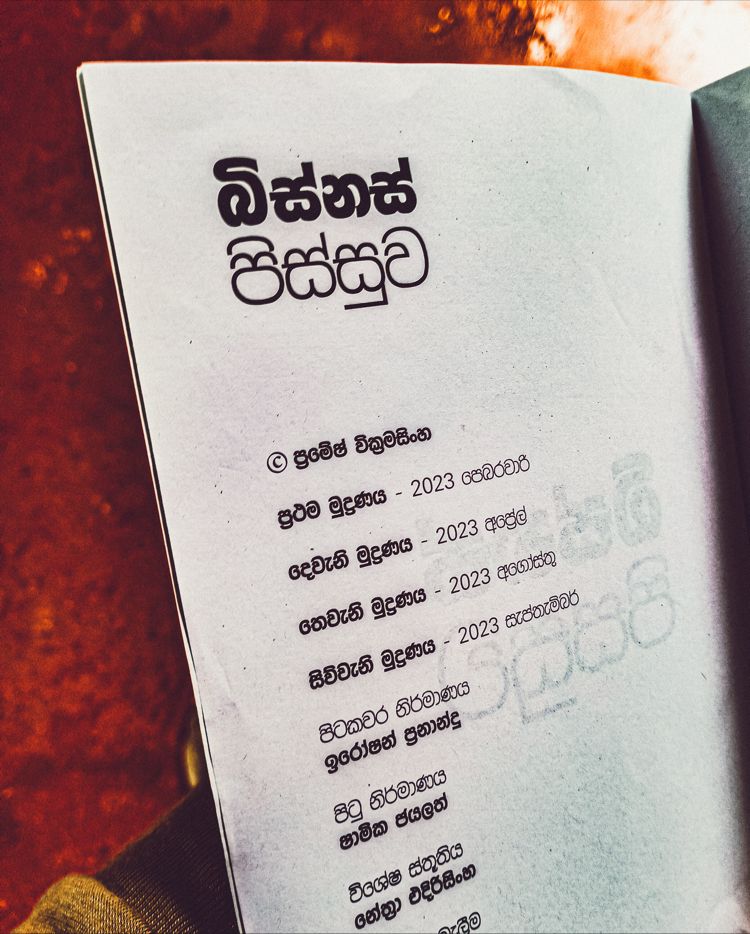 බිස්නස්
පිස්සුව
© ප්‍රමේෂ් වික්‍රමසිංහ
ප්‍රථම මුද්‍රණය - 2023 පෙබරවාරි
දෙවැනි මුද්‍රණය - 2023 අප්‍රේල්
තෙවැනි මුද්‍රණය - 2023 අගෝස්තු
සිව්වැනි මුද්‍රණය - 2023 සැප්තැම්බර්
පිටකවර නිර්මාණය
ඉරෝෂන් ප්‍රනාන්දු
පිටු නිර්මාණය
ෂාමික ජයලත්
විශේෂ ස්තූතිය
නේත්‍රා එදිරිසිංහ